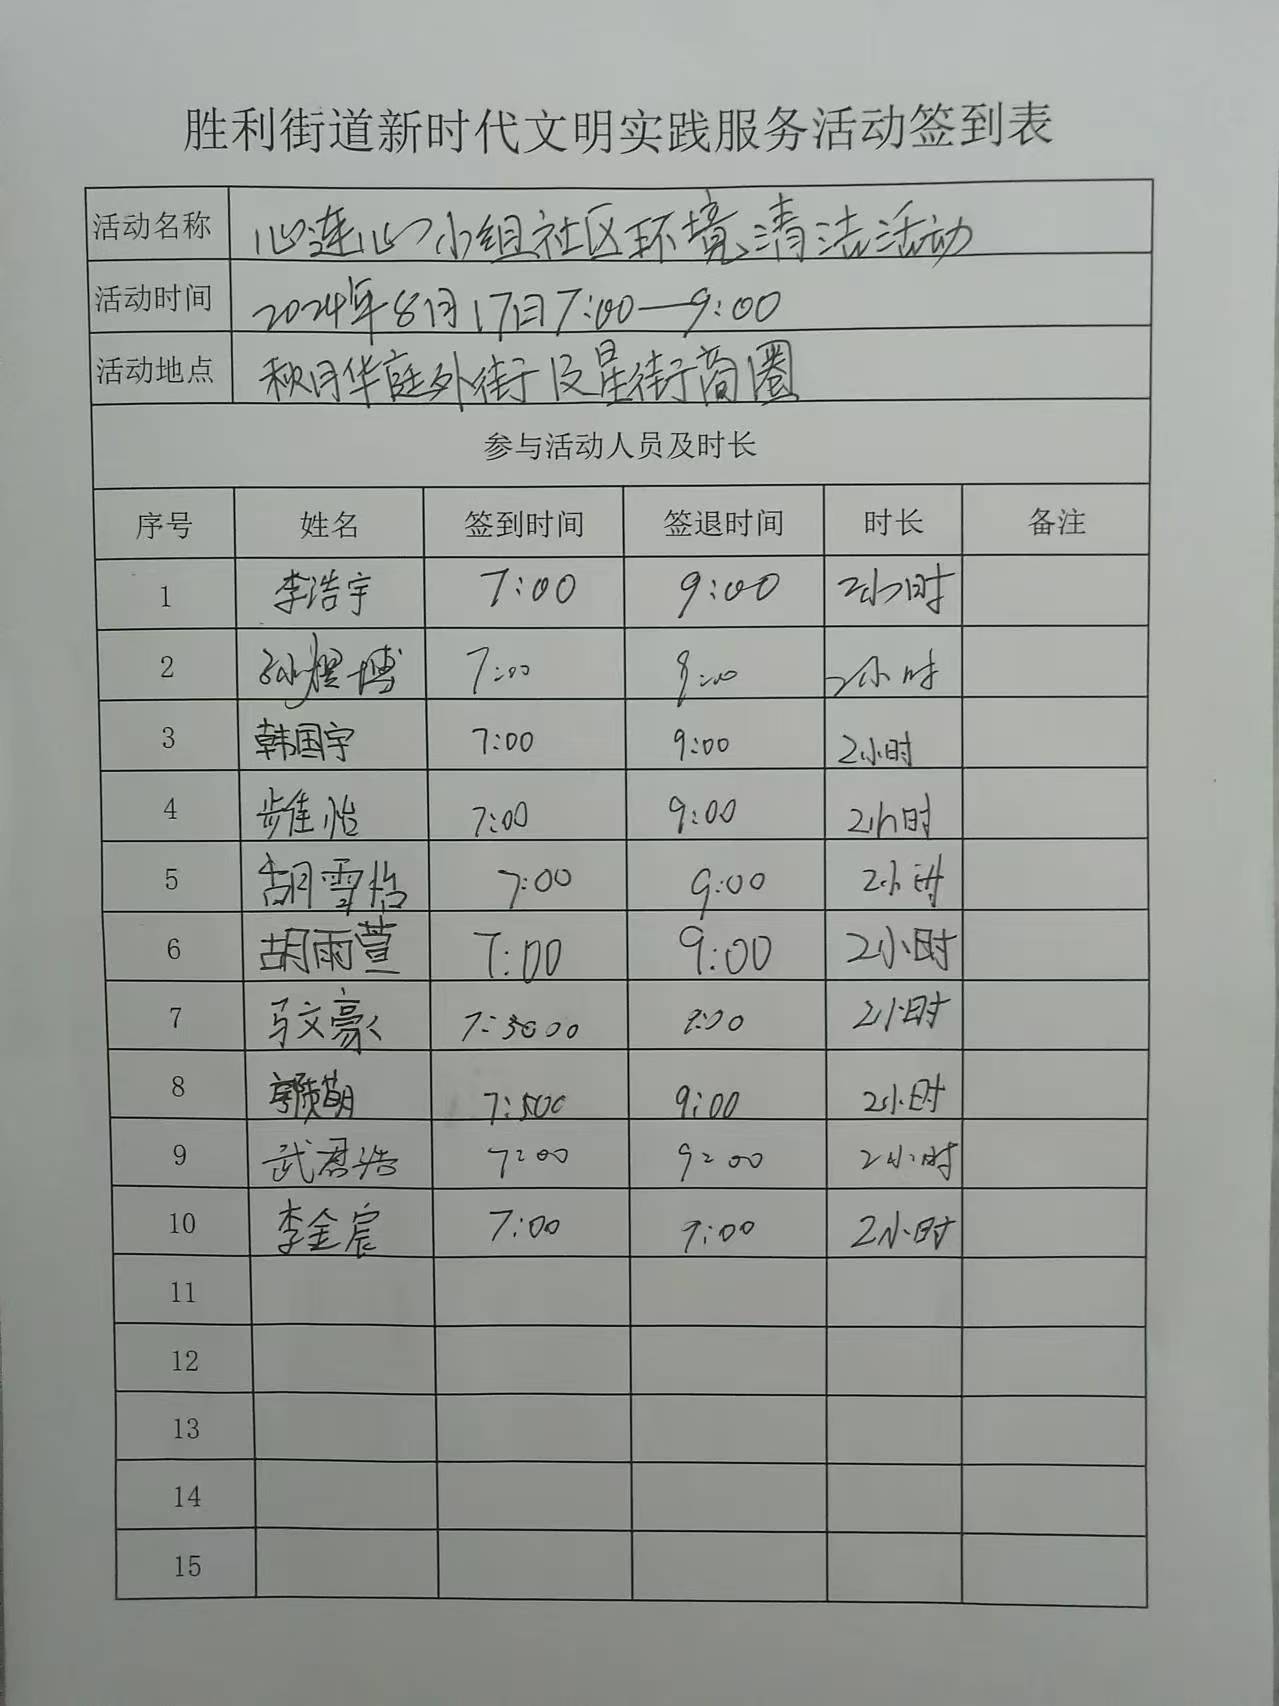 胜利街道新时代文明实践服务活动签到表
活动名称 心连心小组社区环境清洁活动
活动时间 2024年8月17日7:00—9:00
活动地点 秋月华庭外街及星街商圈
参与活动人员及时长
序号 姓名 签到时间 签退时间 时长 备注
1 李浩宇 7:00 9:00 2小时
2 孙煜博 7:00 9:00 2小时
3 韩国宇 7:00 9:00 2小时
4 步佳怡 7:00 9:00 2小时
5 胡雪怡 7:00 9:00 2小时
6 胡雨萱 7:00 9:00 2小时
7 马文豪 7: 00 9:00 2小时
8 7: 00 9:00 2小时
9 武君浩 7:00 9:00 2小时
10 李金宸 7:00 9:00 2小时
11
12
13
14
15